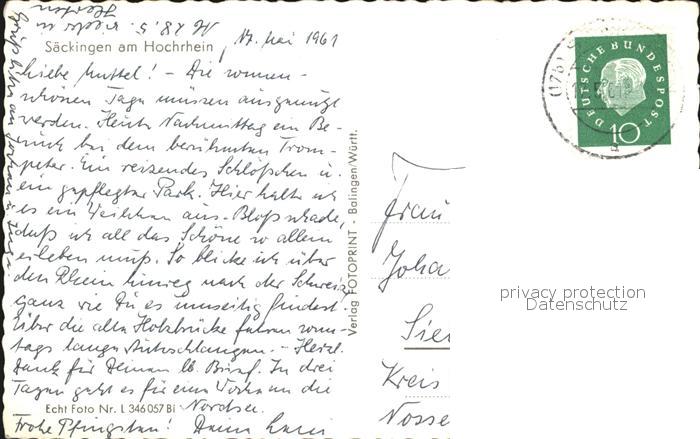 Säckingen am Hochrhein
17. Mai 1961
Liebe Muttel! - Die wunder-
schönen Tage müssen ausgenutzt
werden. Heute Nachmittag ein Be-
such bei dem berühmten Trom-
peter. Ein reizendes Schlößchen u.
ein gepflegter Park. Hier halte ich
es ein Weilchen aus. Bloß schade,
daß ich all das Schöne so allein
erleben muß. So blicke ich über
den Rhein hinweg nach der Schweiz
ganz wie Du es umseitig findest.
Über die alte Holzbrücke fahren
tags lange Autoschlangen. - Herzl.
Dank für Deinen lb. Brief. In drei
Tagen geht es für eine Woche an die
Nordsee.
Frohe Pfingsten! Deine
Echt Foto Nr. L 346 057 Bi
Verlag FOTOPRINT - Balingen/Württ.
DEUTSCHE BUNDESPOST
10
(17b)
Frau
Joha
Sie
Kreis
Nosse
privacy protection
Datenschutz